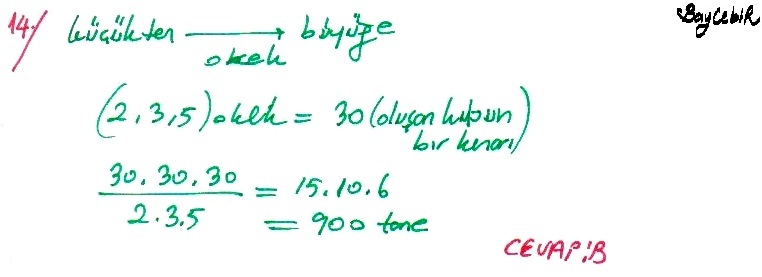 14/ küçükten → büyüğe
okek
BayCebiR
(2,3,5)okek = 30 (oluşan küpün
bir kenarı)
30.30.30 / 2.3.5 = 15.10.6
= 900 tane
CEVAP:B